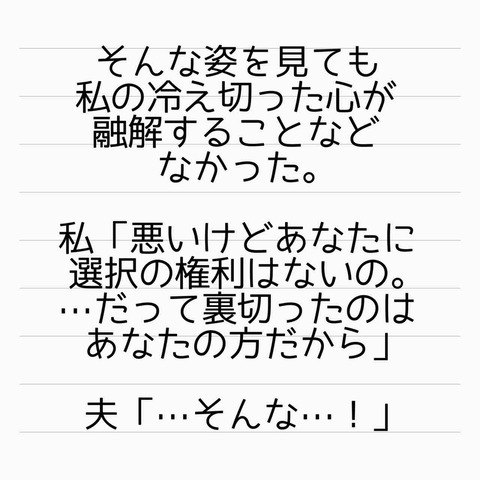 そんな姿を見ても
私の冷え切った心が
融解することなど
なかった。
私「悪いけどあなたに
選択の権利はないの。
…だって裏切ったのは
あなたの方だから」
夫「…そんな…！」